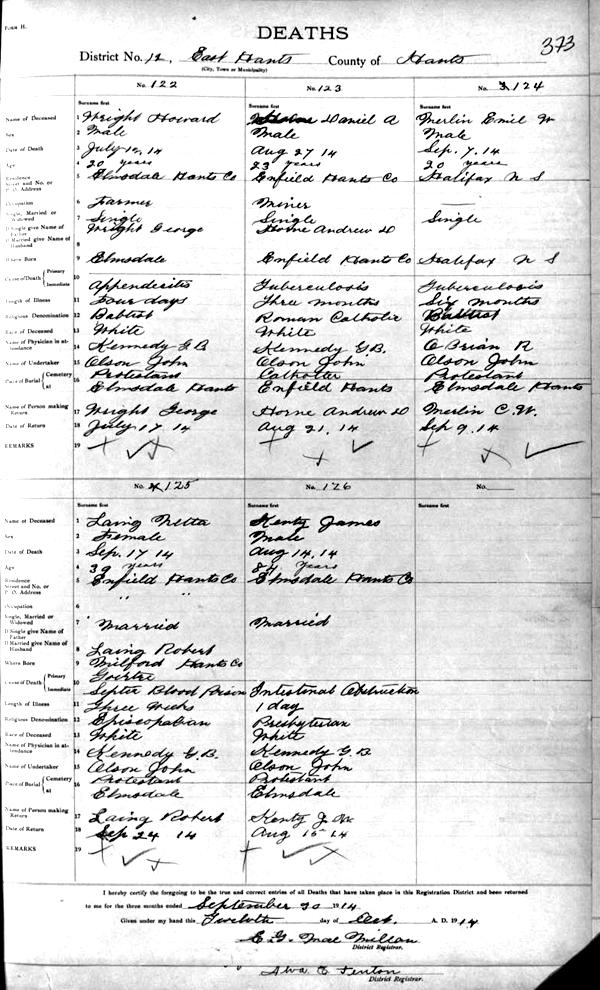 FORM H.
373
DEATHS
District No. 12, East Hants County of Hants
(City, Town or Municipality)
No. 122 No. 123 No. 124
Surname first Surname first Surname first
Name of Deceased 1 Wright Howard Daniel A Merlin Emil W
Sex 2 Male Male Male
Date of Death 3 July 12, 14 Aug 27 14 Sep. 7, 14
Age 4 20 years 23 years 20 years
Residence Street and No. or P. O. Address 5 Elmsdale Hants Co Enfield Hants Co Halifax N S
Occupation 6 Farmer Miner —
Single, Married or Widowed 7 Single Single Single
If Single give Name of Father Wright George Horne Andrew D
If Married give Name of Husband 8
Where Born 9 Elmsdale Enfield Hants Co Halifax N S
Cause of Death { Primary Immediate 10 Appendesites Tuberculosis Tuberculosis
Length of Illness 11 Four days Three months Six months
Religious Denomination 12 Babtist Roman Catholic Babtist
Race of Deceased 13 White White White
Name of Physician in attendance 14 Kennedy G B Kennedy G B. O Brian R
Name of Undertaker 15 Olson John Olson John Olson John
Place of Burial { Cemetery at 16 Protestant Catholic Protestant
Elmsdale Hants Enfield Hants Elmsdale Hants
Name of Person making Return 17 Wright George Horne Andrew D Merlin C. W.
Date of Return 18 July 17 14 Aug 21, 14 Sep 9, 14
REMARKS 19
No. 125 No. 126 No.
Surname first Surname first Surname first
Name of Deceased 1 Laing Netta Kenty James
Sex 2 Female Male
Date of Death 3 Sep. 17 14 Aug 14, 14
Age 4 39 years 84 Years
Residence Street and No. or P. O. Address 5 Enfield Hants Co Elmsdale Hants Co
Occupation 6 " "
Single, Married or Widowed 7 Married Married
If Single give Name of Father
If Married give Name of Husband 8 Laing Robert
Where Born 9 Milford Hants Co
Cause of Death { Primary Immediate 10 Goirtre
Septer Blood Poison Intestinal Obstruction
Length of Illness 11 Three Weeks 1 day
Religious Denomination 12 Episcopalian Presbyterian
Race of Deceased 13 White White
Name of Physician in attendance 14 Kennedy G. B. Kennedy G B
Name of Undertaker 15 Olson John Olson John
Place of Burial { Cemetery at 16 Protestant Protestant
Elmsdale Elmsdale
Name of Person making Return 17 Laing Robert Kenty J.
Date of Return 18 Sep 24 14 Aug 15 14
REMARKS 19
I hereby certify the foregoing to be the true and correct entries of all Deaths that have taken place in this Registration District and been returned
to me for the three months ended September 30 1914
Given under my hand this Twelvth day of Oct. A. D. 1914
E G. Mac Millan
District Registrar.
Alva E Fenton
District Registrar.